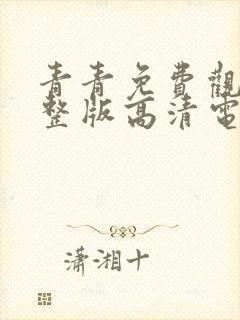 青青免費觀
整版高清電
潇湘十